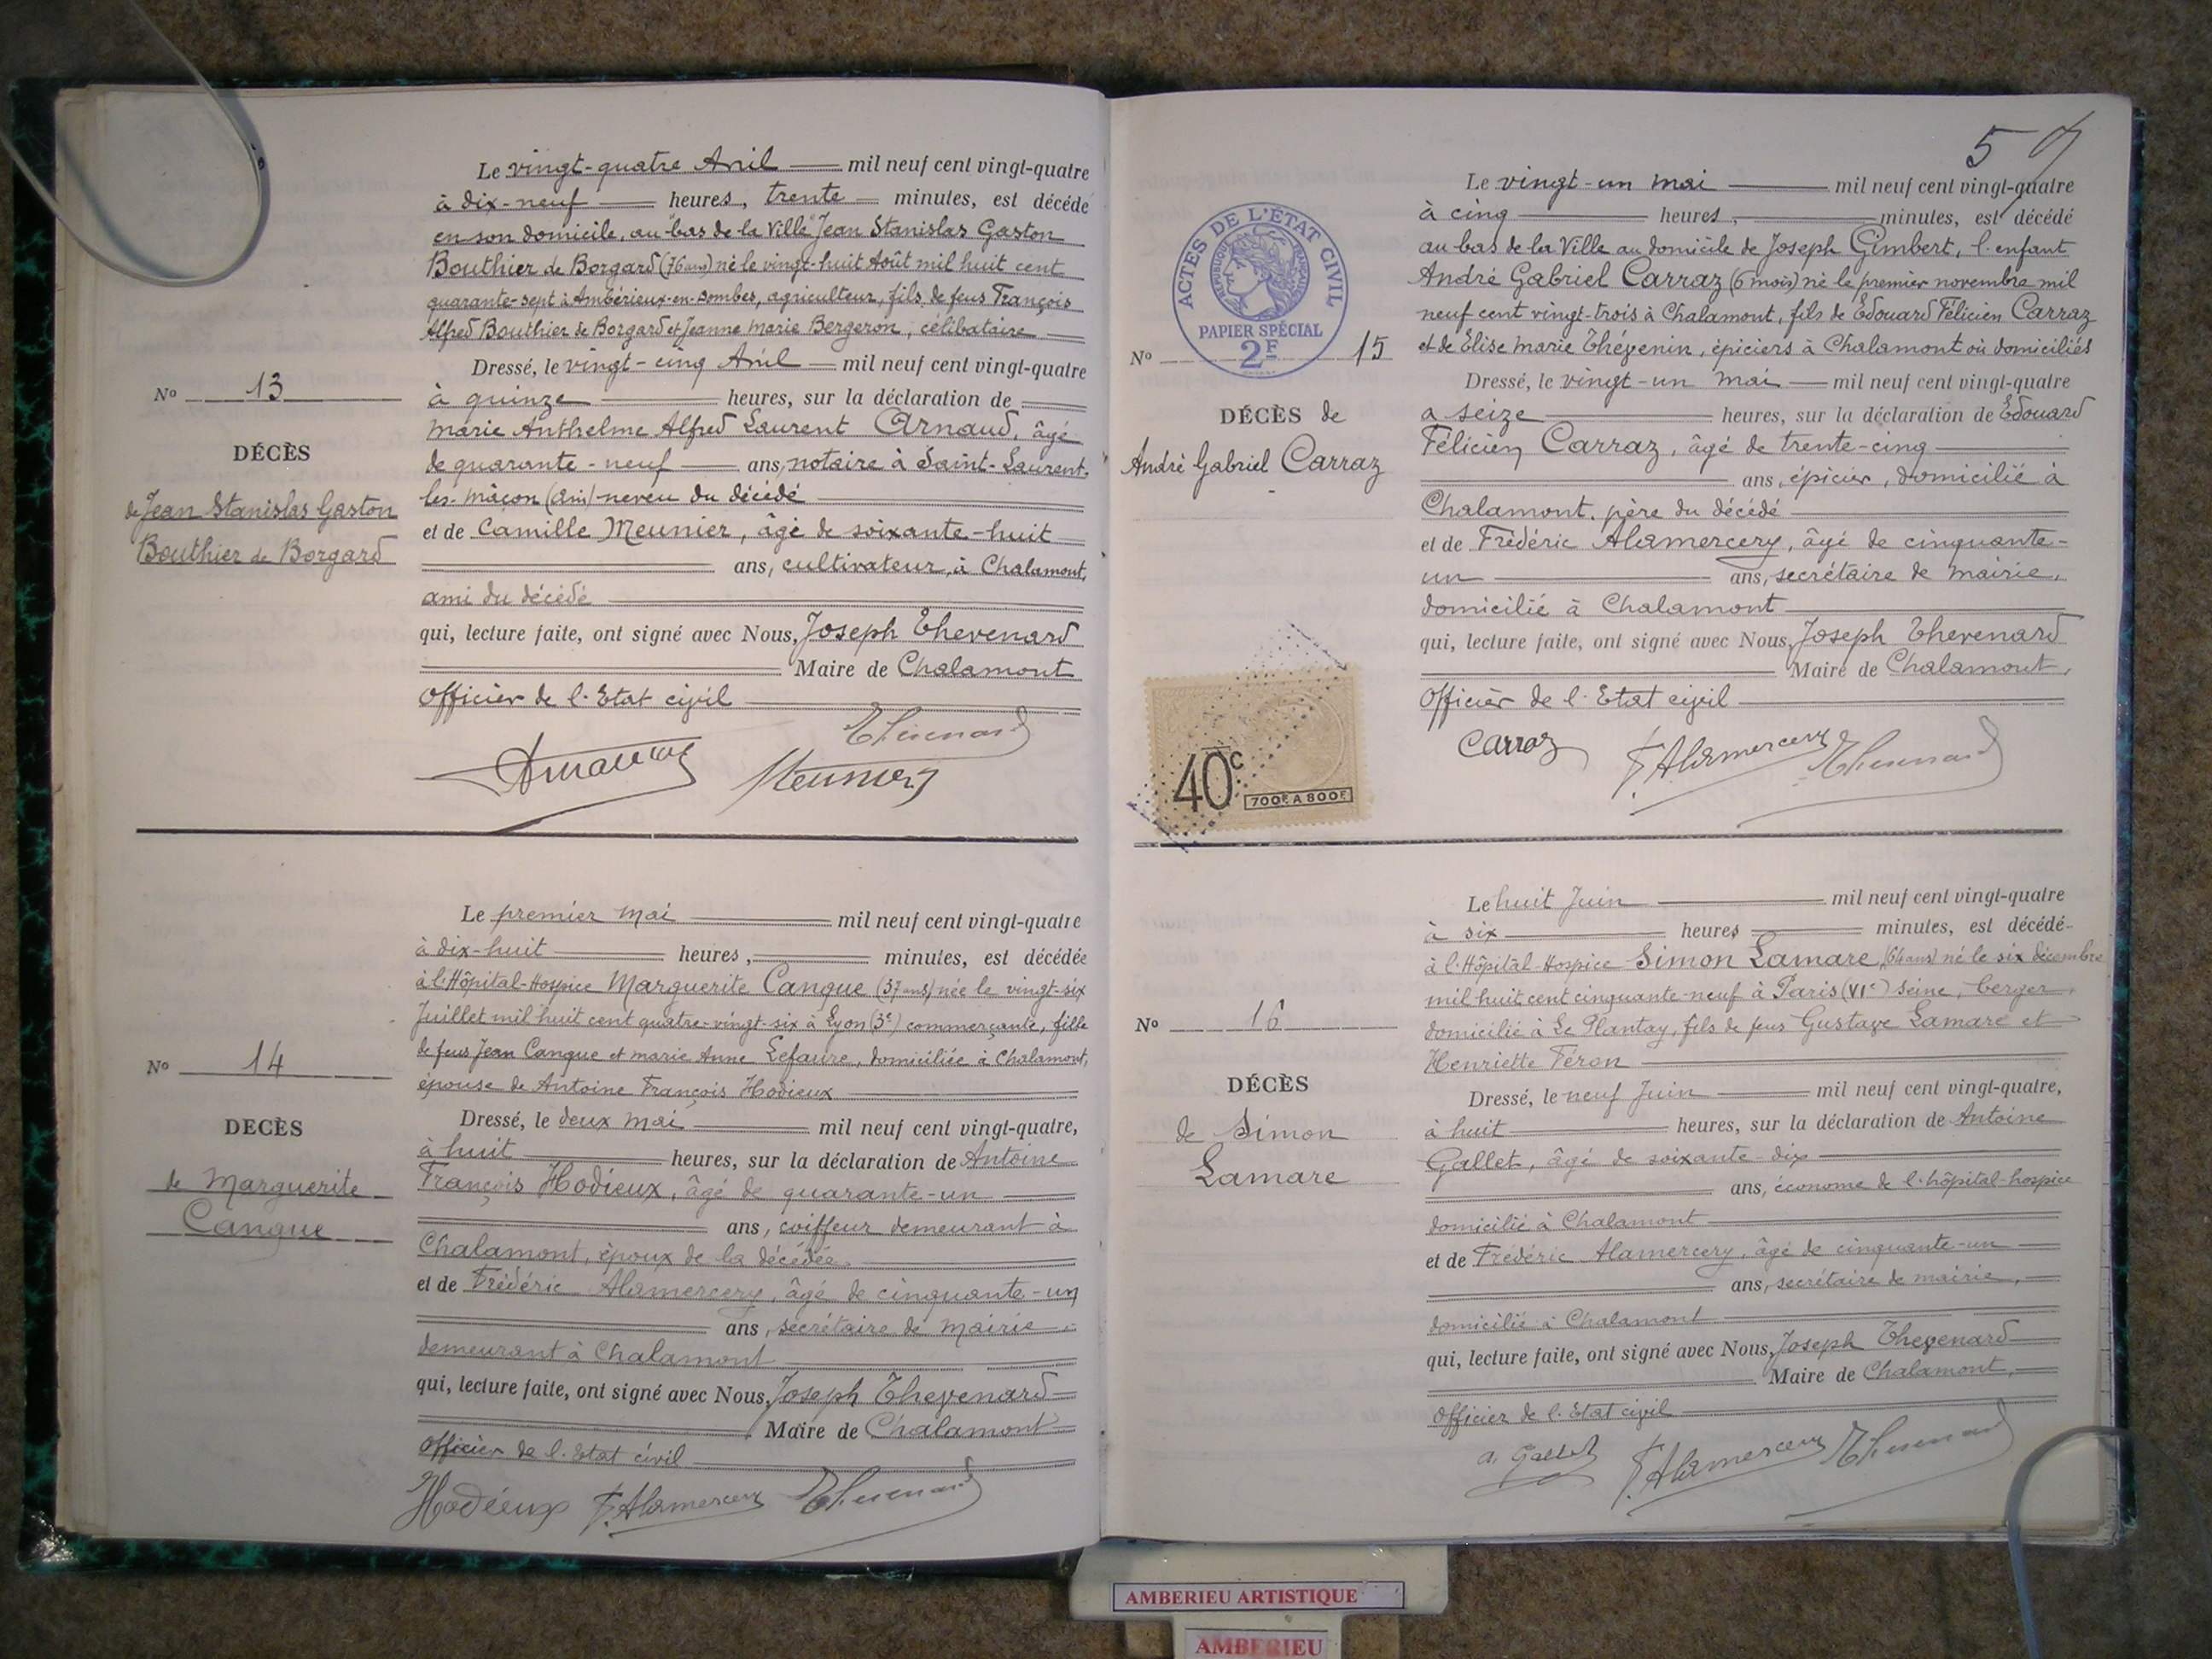 Le vingt-quatre Avril mil neuf cent vingt-quatre
à dix-neuf heures, trente minutes, est décédé
en son domicile, au "bas de la Ville" Jean Stanislas Gaston
Bouthier de Borgard (76 ans) né le vingt-huit Août mil huit cent
quarante-sept à Ambérieux-en-Dombes, agriculteur, fils de feus François
Alfred Bouthier de Borgard et Jeanne Marie Bergeron, célibataire
Dressé, le vingt-cinq Avril mil neuf cent vingt-quatre
à quinze heures, sur la déclaration de
Marie Anthelme Alfred Laurent Arnaud, âgé
de quarante-neuf ans, notaire à Saint-Laurent-
les-Mâcon (Ain) neveu du décédé
et de Camille Meunier, âgé de soixante-huit
ans, cultivateur, à Chalamont,
ami du décédé
qui, lecture faite, ont signé avec Nous, Joseph Thevenard
Maire de Chalamont
Officier de l'Etat civil
Thevenard
Arnaud
Meunier
No 13
DÉCÈS
de Jean Stanislas Gaston
Bouthier de Borgard
Le premier Mai mil neuf cent vingt-quatre
à dix-huit heures, minutes, est décédée
à l'Hôpital-Hospice Marguerite Cangue (37 ans) née le vingt-six
Juillet mil huit cent quatre-vingt-six à Lyon (3e) commerçante, fille
de feus Jean Cangue et Marie Anne Lefaure, domiciliée à Chalamont,
épouse de Antoine François Hodieux
Dressé, le deux Mai mil neuf cent vingt-quatre,
à huit heures, sur la déclaration de Antoine
François Hodieux, âgé de quarante-un
ans, coiffeur demeurant à
Chalamont, époux de la décédée.
et de Frédéric Alamercery, âgé de cinquante-un
ans, secrétaire de mairie
demeurant à Chalamont
qui, lecture faite, ont signé avec Nous, Joseph Thevenard
Maire de Chalamont
Officier de l'Etat civil
Hodieux F. Alamercery Thevenard
No 14
DECÈS
de Marguerite
Cangue
5
Le vingt-un Mai mil neuf cent vingt-quatre
à cinq heures, minutes, est décédé
au bas de la Ville au domicile de Joseph Gimbert, l'enfant
André Gabriel Carraz (6 mois) né le premier novembre mil
neuf cent vingt-trois à Chalamont, fils de Edouard Félicien Carraz
et de Elise Marie Thévenin, épiciers à Chalamont où domiciliés
Dressé, le vingt-un Mai mil neuf cent vingt-quatre
a seize heures, sur la déclaration de Edouard
Félicien Carraz, âgé de trente-cinq
ans, épicier, domicilié à
Chalamont, père du décédé
et de Frédéric Alamercery, âgé de cinquante-
un ans, secrétaire de mairie,
domicilié à Chalamont
qui, lecture faite, ont signé avec Nous, Joseph Thevenard
Maire de Chalamont,
Officier de l'Etat civil
Carraz F. Alamercery Thevenard
ACTES DE L'ÉTAT CIVIL
RÉPUBLIQUE FRANÇAISE
PAPIER SPÉCIAL
2F
No 15
DÉCÈS de
André Gabriel Carraz
40c
700F A 800F
Le huit Juin mil neuf cent vingt-quatre
à six heures minutes, est décédé
à l'Hôpital-Hospice Simon Lamare (64 ans) né le six décembre
mil huit cent cinquante-neuf à Paris (VIe) Seine, berger,
domicilié à Le Plantay, fils de feus Gustave Lamare et
Henriette Féron
Dressé, le neuf Juin mil neuf cent vingt-quatre,
à huit heures, sur la déclaration de Antoine
Gallet, âgé de soixante-dix
ans, économe de l'hôpital-hospice
domicilié à Chalamont
et de Frédéric Alamercery, âgé de cinquante-un
ans, secrétaire de mairie,
domicilié à Chalamont
qui, lecture faite, ont signé avec Nous, Joseph Thevenard
Maire de Chalamont,
Officier de l'Etat civil
a. Gallet F. Alamercery Thevenard
No 16
DÉCÈS
de Simon
Lamare
AMBERIEU ARTISTIQUE
AMBERIEU